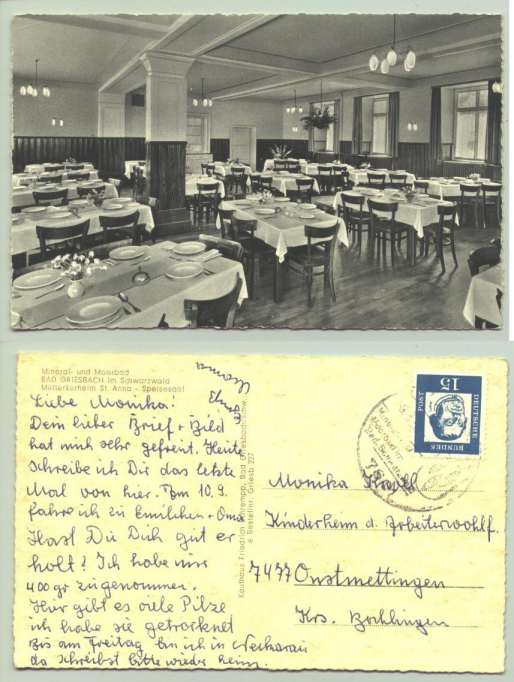 Mineral- und Moorbad
BAD GRIESBACH im Schwarzwald
Mütterkurheim St. Anna - Speisesaal
Liebe Monika!
Dein lieber Brief + Bild
hat mich sehr gefreut. Heute
schreibe ich Dir das letzte
Mal von hier. Am 10.9.
fahre ich zu Emilchen + Oma
Hast Du Dich gut er
holt? Ich habe nur
400 gr zugenommen.
Hier gibt es viele Pilze
ich habe sie getrocknet
Bis am Freitag bin ich in Neckarau
da schreibst bitte wieder heim.
Mama
Kaufhaus Friedrich Bad Griesbach
Bestellnr. Griesb 227
15
DEUTSCHE
BUNDES
POST
Monika
Kinderheim d. Arbeiterwohlf.
7477 Onstmettingen
Krs. Bochlingen